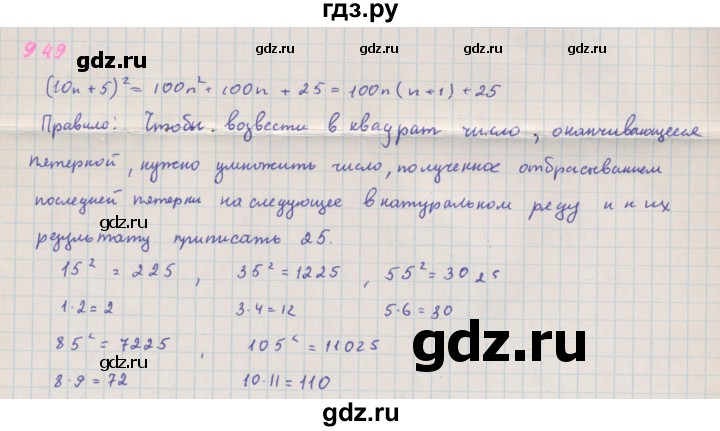 гдз.ру
949
(10n + 5)² = 100n² + 100n + 25 = 100n(n+1) + 25
Правило: Чтобы возвести в квадрат число, оканчивающееся
пятеркой, нужно умножить число, полученное отбрасыванием
последней пятерки на следующее в натуральном ряду и к их
результату приписать 25.
15² = 225, 35² = 1225, 55² = 3025
1·2=2 3·4=12 5·6=30
85² = 7225, 105² = 11025
8·9=72 10·11=110
gdz.ru gdz.ru gdz.ru
gdz.ru gdz.ru gdz.ru
gdz.ru gdz.ru gdz.ru
gdz.ru gdz.ru gdz.ru
gdz.ru